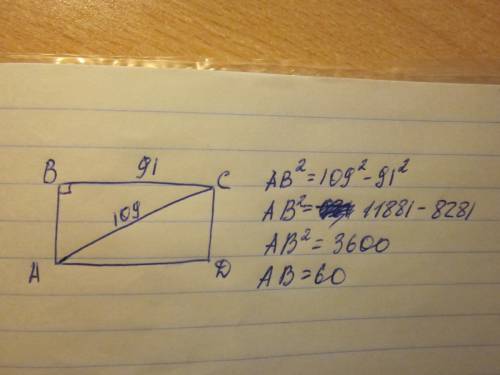 B 91 C
109
A D
AB² = 109² - 91²
AB² = 11881 - 8281
AB² = 3600
AB = 60